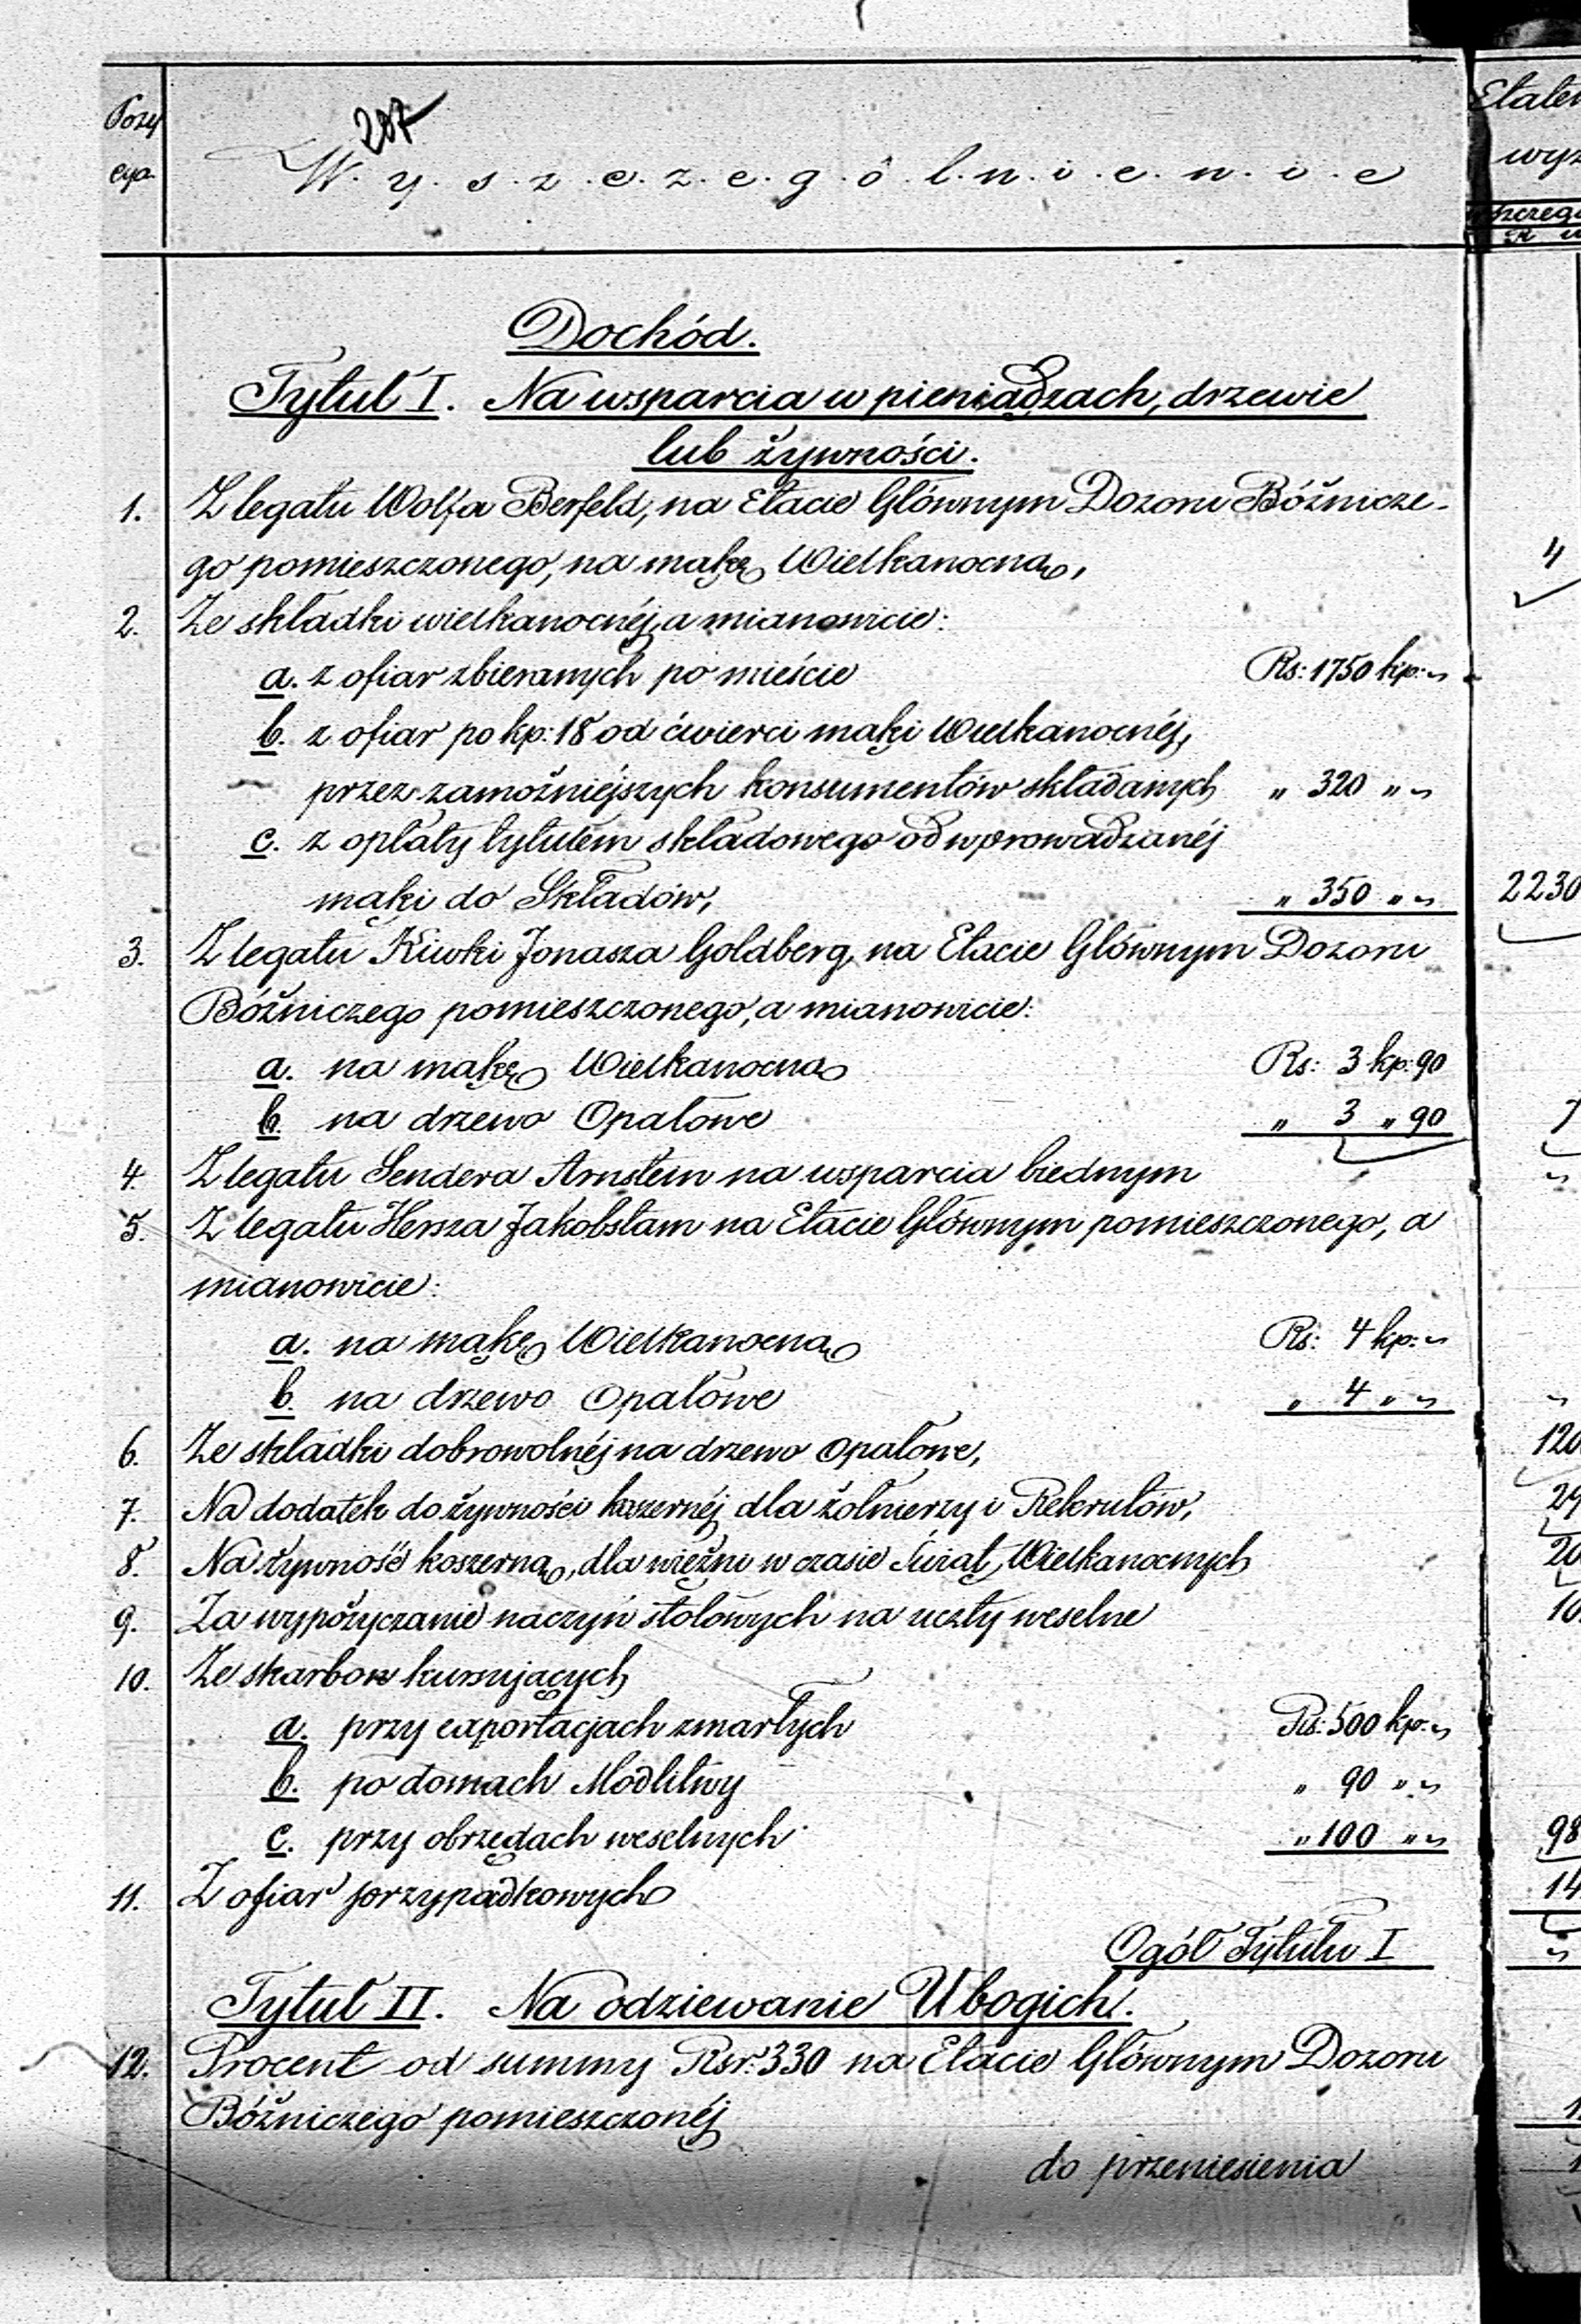 Pozy
cya.
207
W. y. s. z. c. z. e. g. ó. l. n. i. e. n. i. e
Etatem
wyz
Dochód.
Tytuł I. Na wsparcia w pieniądzach, drzewie
lub żywności.
1. Z legatu Wolfa Berfeld, na Etacie Głównym Dozoru Bóżnicze-
go pomieszczonego, na mąkę Wielkanocną,
4
2. Ze składki wielkanocnéj, a mianowicie:
a. z ofiar zbieranych po mieście Rs: 1750 kp: „
b. z ofiar po kp: 18 od ćwierci mąki Wielkanocnéj,
przez zamożniejszych konsumentów składanych „ 320 „ „
c. z opłaty tytułem składowego od wprowadzanéj
mąki do Składów, „ 350 „ „ 2230
3. Z legatu Kiwki Jonasza Goldberg, na Etacie Głównym Dozoru
Bóżniczego pomieszczonego, a mianowicie:
a. na mąkę Wielkanocną Rs: 3 kp: 90
b. na drzewo Opałowe „ 3 „ 90 7
4. Z legatu Sendera Arnstein na wsparcia biednym „
5. Z legatu Hersza Jakobstam na Etacie Głównym pomieszczonego, a
mianowicie:
a. na mąkę Wielkanocną Rs: 4 kp: „
b. na drzewo Opałowe „ 4 „ „ „
6. Ze składki dobrowolnéj na drzewo opałowe, 120
7. Na dodatek do żywności kozernéj dla żołnierzy i Rekrutów, 29
8. Na żywność koszerną, dla więźni w czasie Świąt Wielkanocnych 20
9. Za wypożyczanie naczyń stołowych na uczty weselne 10
10. Ze skarbon kursujących
a. przy exportacjach zmarłych Rs: 500 kp: „
b. po domach Modlitwy „ 90 „ „
c. przy obrzędach weselnych „ 100 „ „ 98
11. Z ofiar przypadkowych 14
Ogół Tytułu I „
Tytuł II. Na odziewanie Ubogich.
12. Procent od summy Rsr: 330 na Etacie Głównym Dozoru
Bóżniczego pomieszczonéj
do przeniesienia